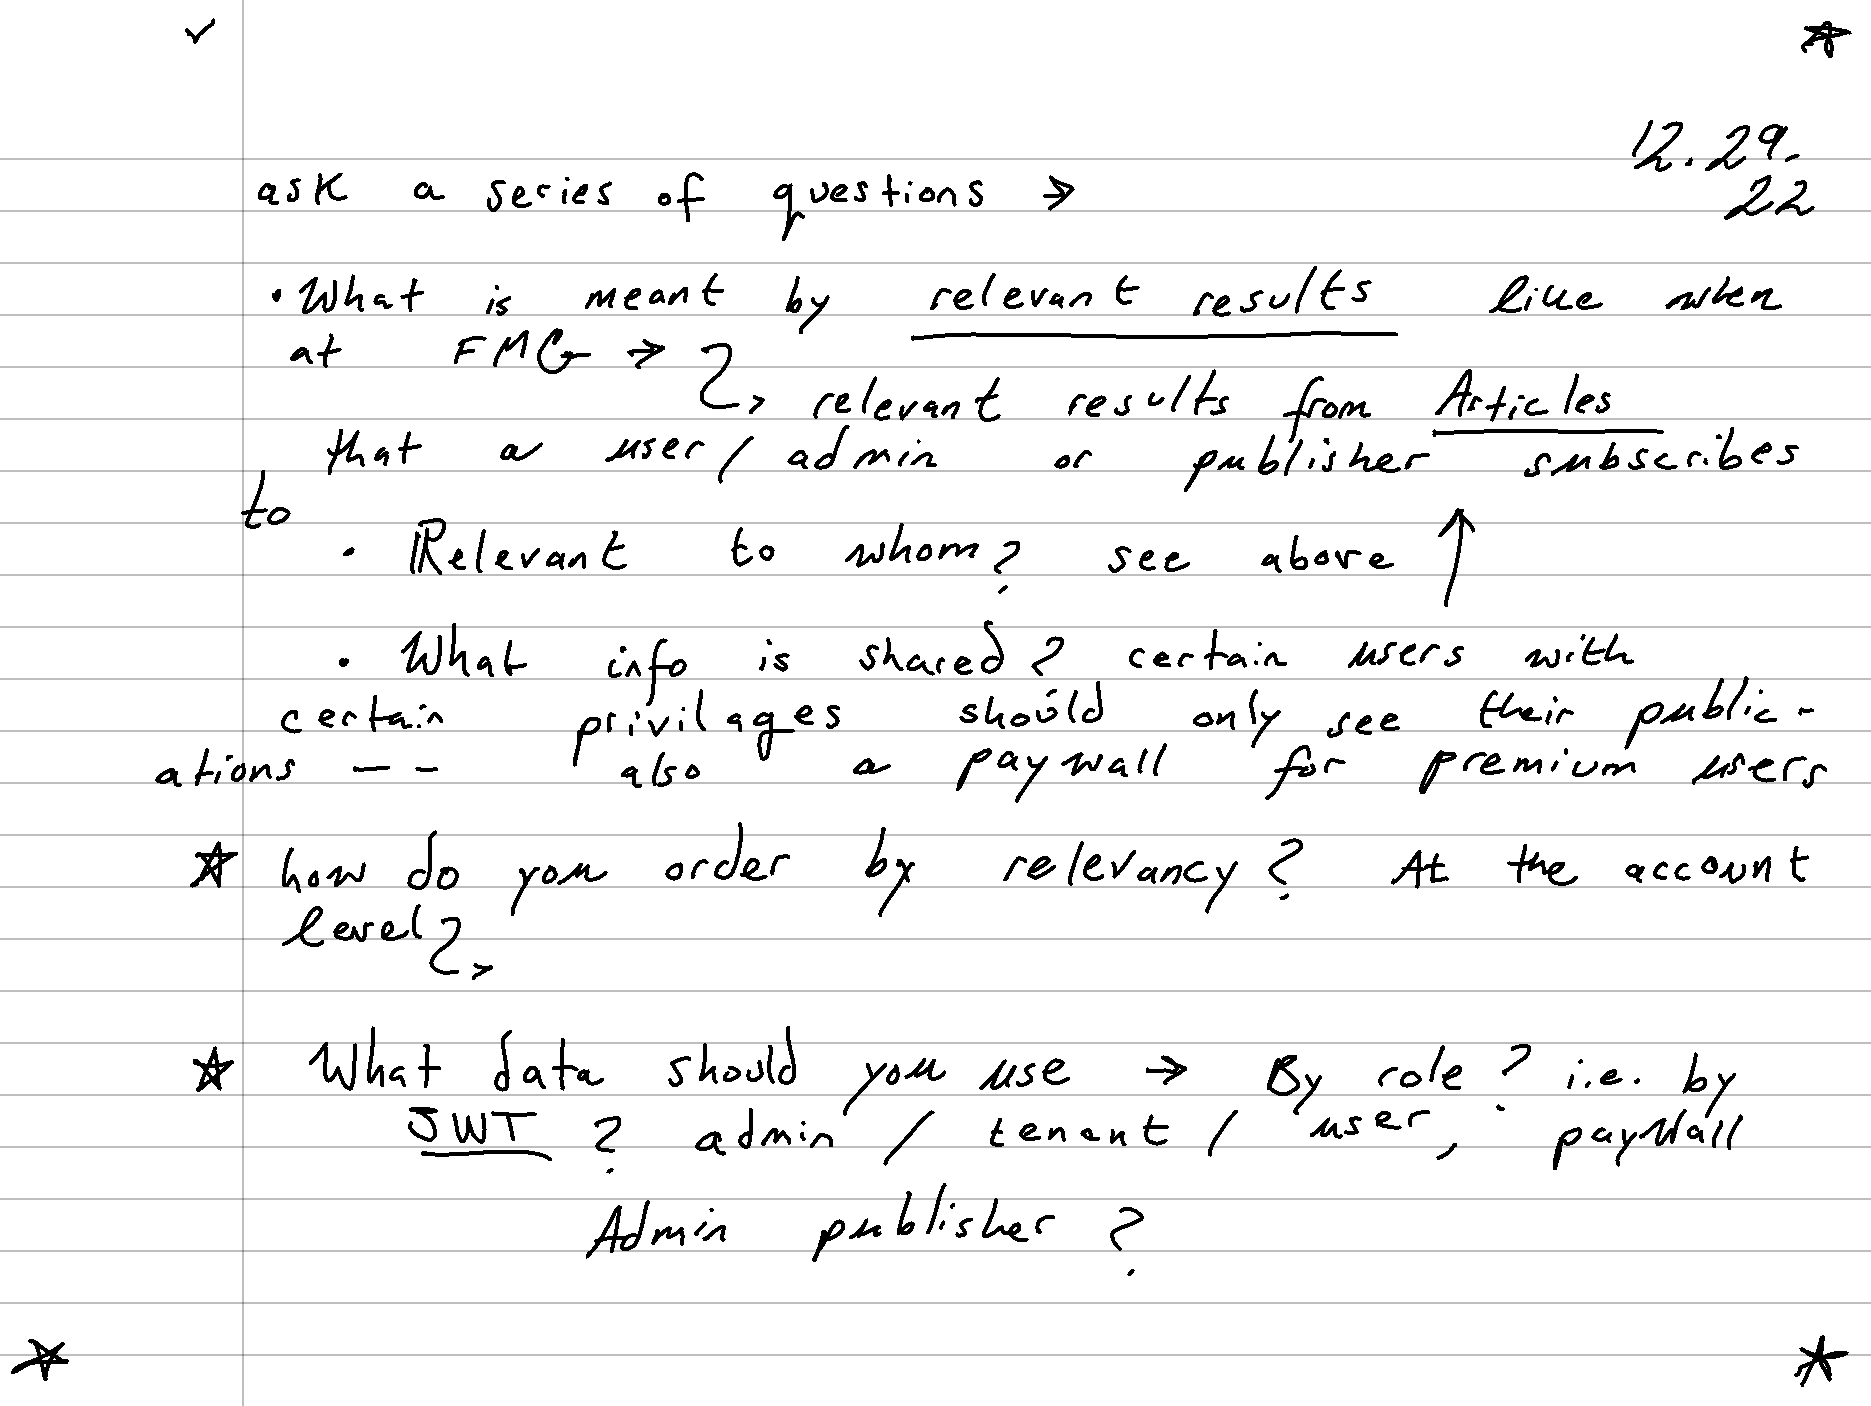 12.29.
22
ask a series of questions →
• What is meant by relevant results like when
at FMG →
relevant results from Articles
that a user / admin or publisher subscribes
to
• Relevant to whom? see above ↑
• What info is shared? certain users with
certain privilages should only see their public-
ations -- also a paywall for premium users
☆ how do you order by relevancy? At the account
level?
☆ What data should you use → By role? i.e. by
JWT? admin / tenent / user, paywall
Admin publisher?